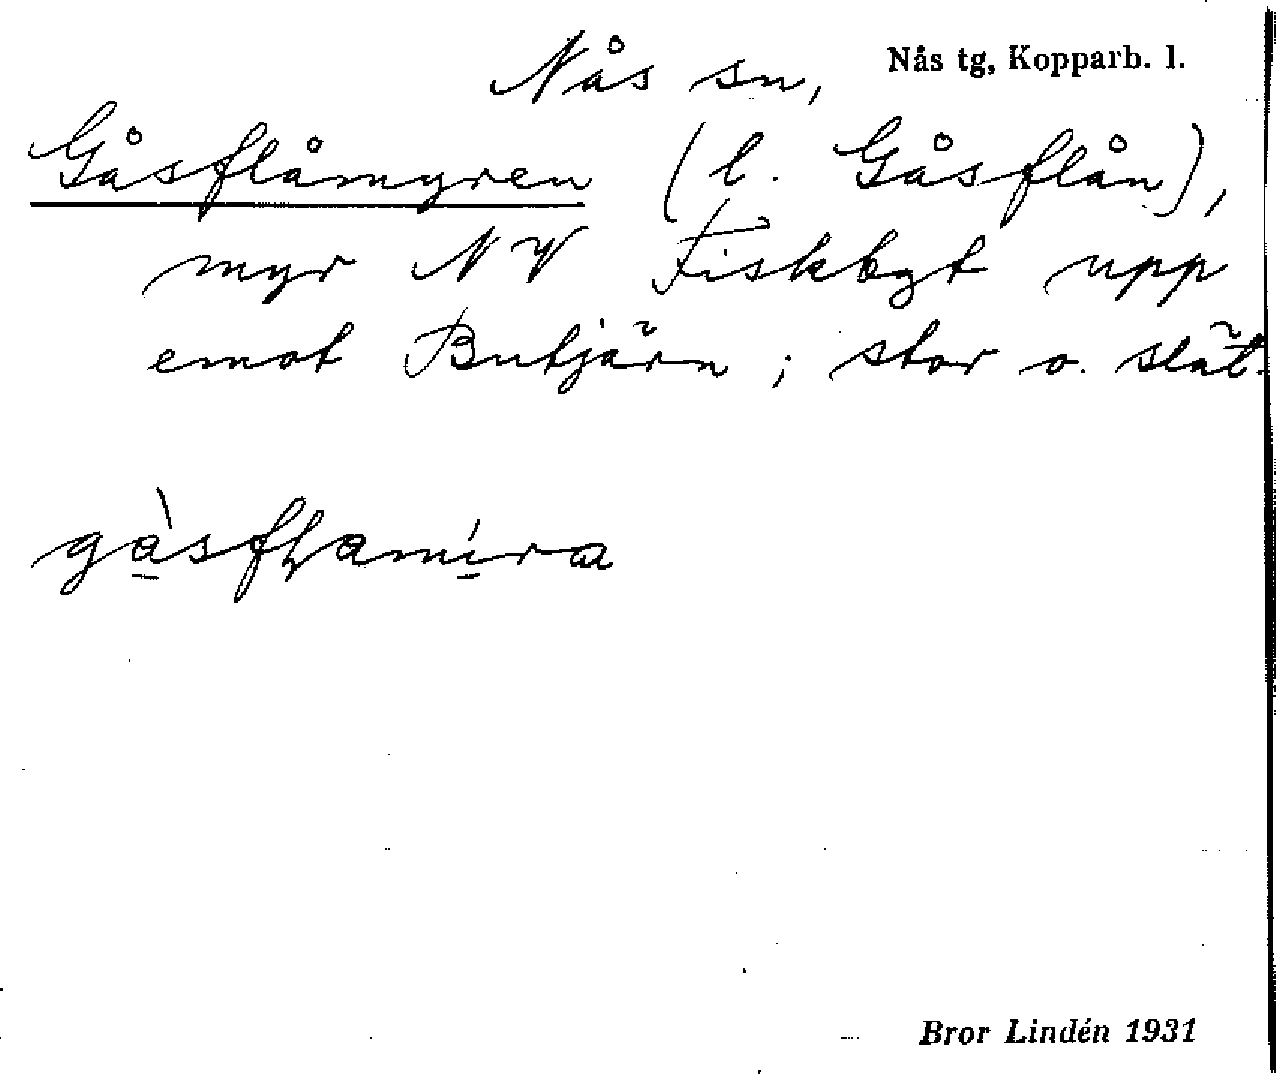 Nås sn, Nås tg, Kopparb. l.
Gåsflåmyren (l. Gåsflån),
myr NV Fiskbyt upp
emot Butjärn; stor o. slät.
gàsfɽamíra
Bror Lindén 1931